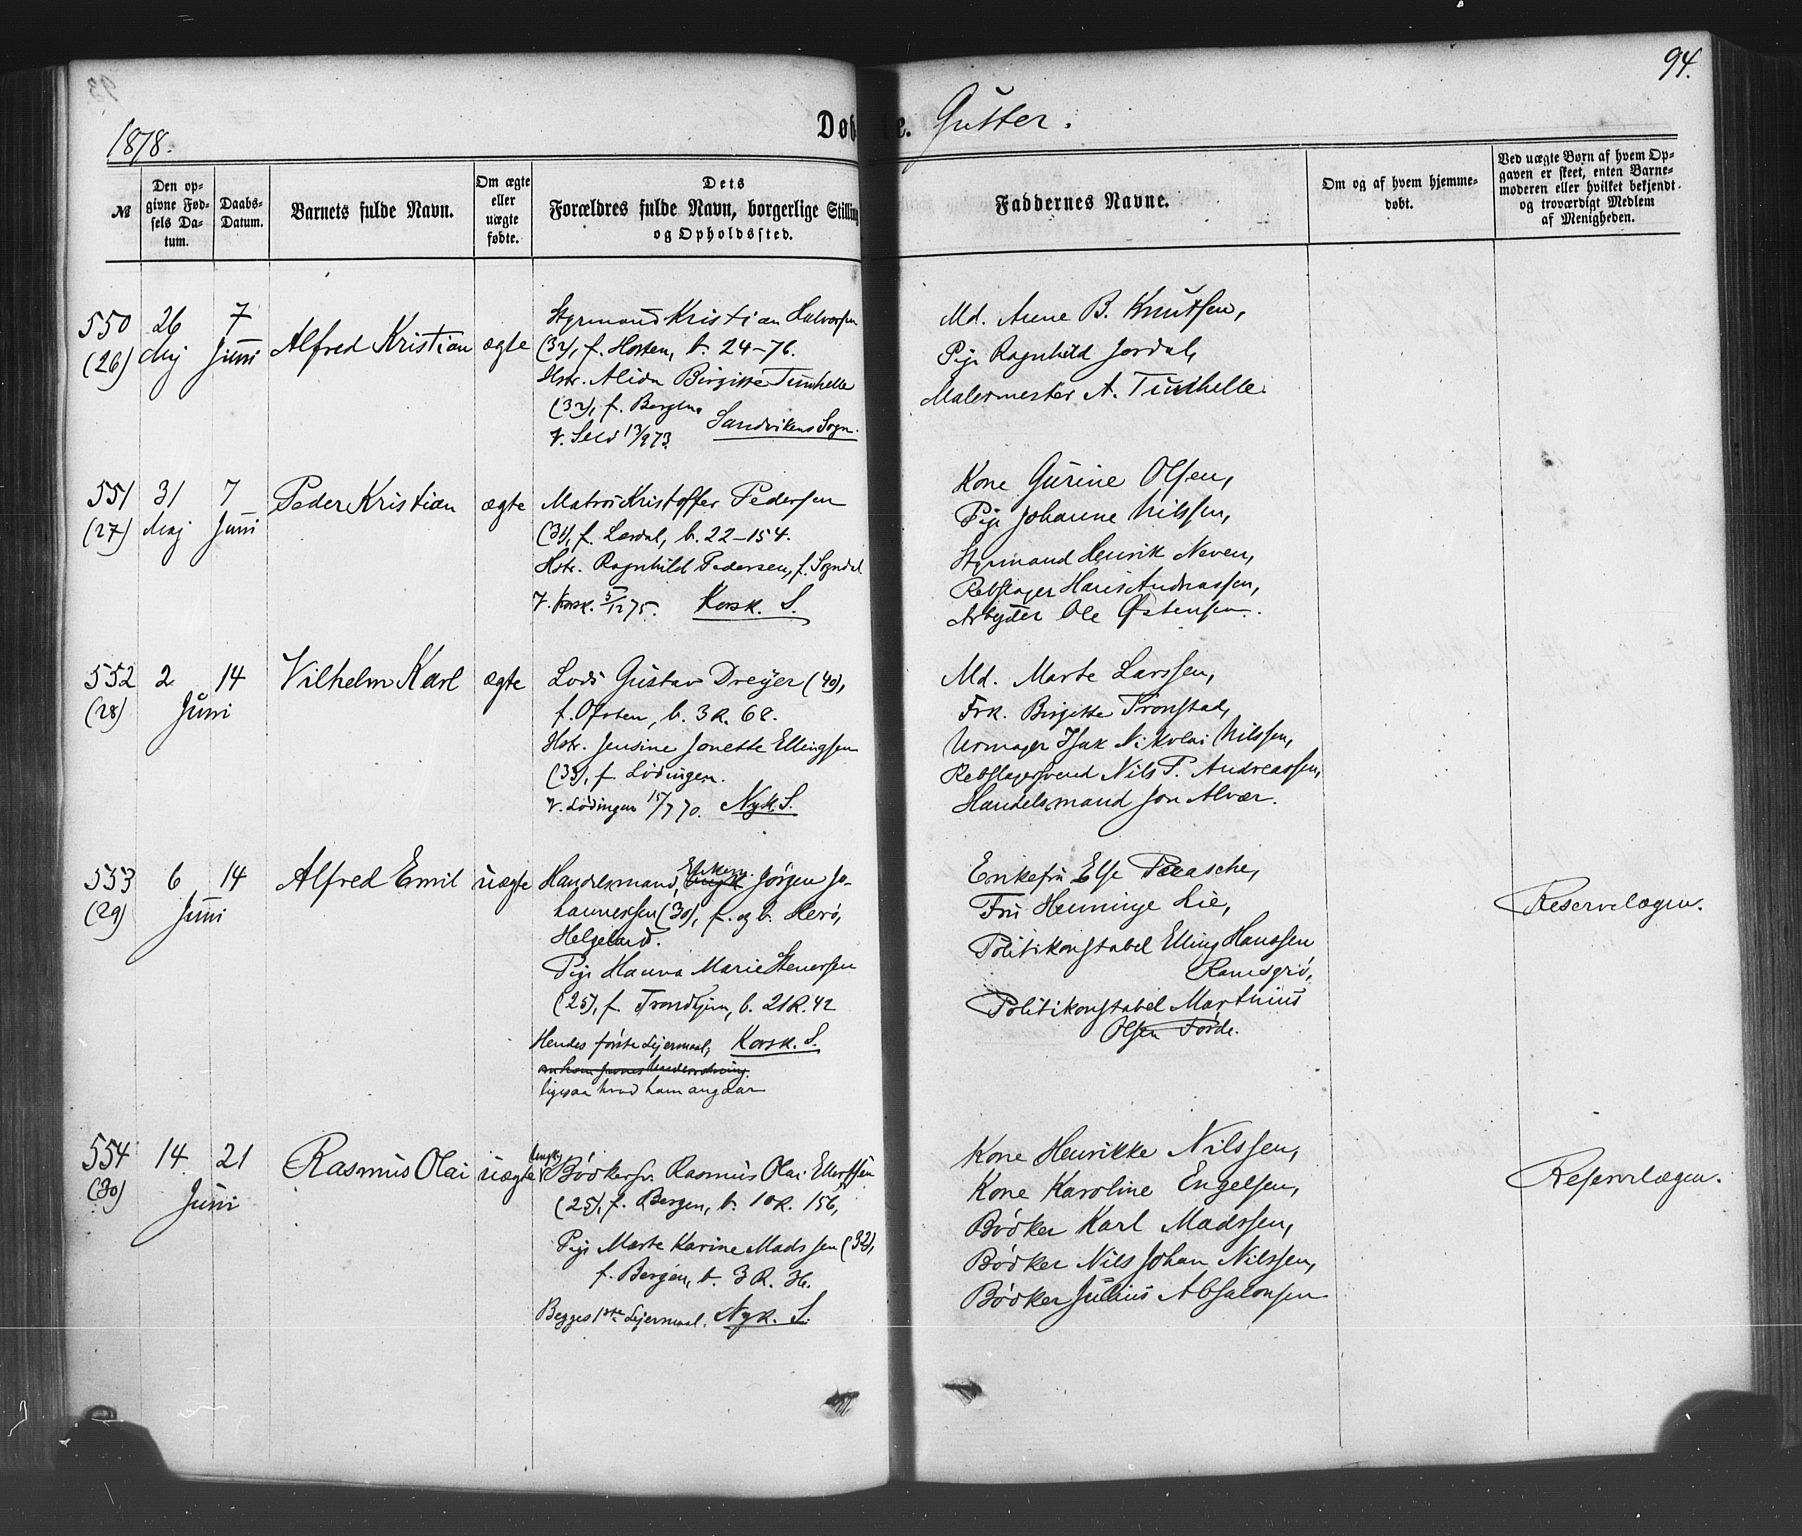 94.
1878.
Døb e. Gutter.
№
Den opgivne Fødsels Datum.
Daabs-Datum.
Barnets fulde Navn.
Om ægte eller uægte fødte.
Dets Forældres fulde Navn, borgerlige Stilling og Opholdssted.
Faddernes Navne.
Om og af hvem hjemmedøbt.
Ved uægte Børn af hvem Opgaven er skeet, enten Barnemoderen eller hvilket bekjendt og troværdigt Medlem af Menigheden.
550 (26)
26 Mij
7 Juni
Alfred Kristian
ægte
Styrmand Kristian Halvorsen
(32), f. Horten, b. 24–76.
Hstr. Alida Birgitte Tuuhelle
(32), f. Bergen
V. Selv 13/9 73. Sandvikens Sogn.
Md. Anne B. Knutsen,
Pige Ragnhild Jordal,
Malermester A. Tuuhelle.
551 (27)
31 Maj
7 Juni
Peder Kristian
ægte
Matros Kristoffer Pedersen
(31), f. Lærdal, b. 22–154.
Hstr. Ragnhild Pedersen, f. Sogndal
V. Korsk. 5/12 75. Korsk. S.
Kone Gurine Olsen,
Pige Johanne Nilssen,
Styrmand Henrik Neven,
Rebslager Hans Andreassen,
Arbejder Ole Østensen.
552 (28)
2
14
Juni
Vilhelm Karl
ægte
Lods Gustav Dreyer (40),
f. Ofoten, b. 3 R. 68.
Hstr. Jensine Jonette Ellingsen
(33), f. Lødingen.
V. Lødingen 15/7 70. Nyk. S.
Md. Marte Larssen,
Frk. Birgitte Tronstad,
Urmager Isak Nikolai Nilssen,
Rebslagersvend Nils P. Andreassen,
Handelsmand Jon Alvær.
553 (29)
6
14
Juni
Alfred Emil
uægte
Handelsmand, Enkem. Jørgen Johannessen (30), f. og b. Herø,
Helgeland.
Pige Hanna Marie Stenersen
(25), f. Trondhjem, b. 21 R. 42
Hendes første Lejermaal, Korsk. S.
ligesaa hvad ham angaar
Enkefru Else Paasche,
Fru Henninge Lie,
Politikonstabel Elling Hanssen
Ramsgrø,
Politikonstabel Marthinus
Olsen Førde.
Reservelægen.
554 (30)
14
21
Juni
Rasmus Olai
uægte
Ungk. Bødkersv. Rasmus Olai Ellertsen
(25), f. Bergen, b. 10 R. 156,
Pige Marte Karine Madssen (32),
f. Bergen, b. 3 R. 36.
Begges 1ste Lejermaal. Nyk. S.
Kone Henrikke Nilssen,
Kone Karoline Engelsen,
Bødker Karl Madssen,
Bødker Nils Johan Nilssen,
Bødker Julius Absalonsen
Reservelægen.